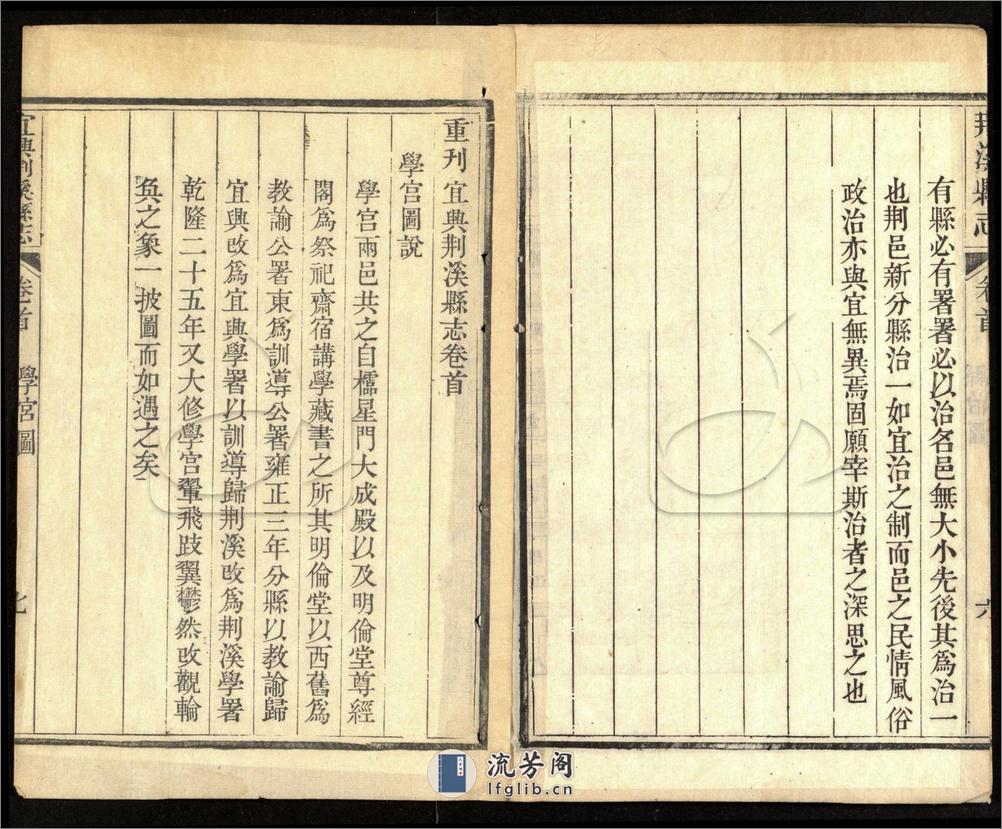 荆溪縣志
卷首
六
有縣必有署署必以治名邑無大小先後其爲治一
也荆邑新分縣治一如宜治之制而邑之民情風俗
政治亦與宜無異焉固願宰斯治者之深思之也
重刊宜興荆溪縣志卷首
學宫圖說
學宫兩邑共之自櫺星門大成殿以及明倫堂尊經
閣爲祭祀齋宿講學藏書之所其明倫堂以西舊爲
教諭公署東爲訓導公署雍正三年分縣以教諭歸
宜興改爲宜興學署以訓導歸荆溪改爲荆溪學署
乾隆二十五年又大修學宫鞏飛跂翼鬱然改觀輪
奐之象一披圖而如遇之矣
宜興荆溪縣志
卷首
學宫圖
七
流芳阁
lfglib.cn